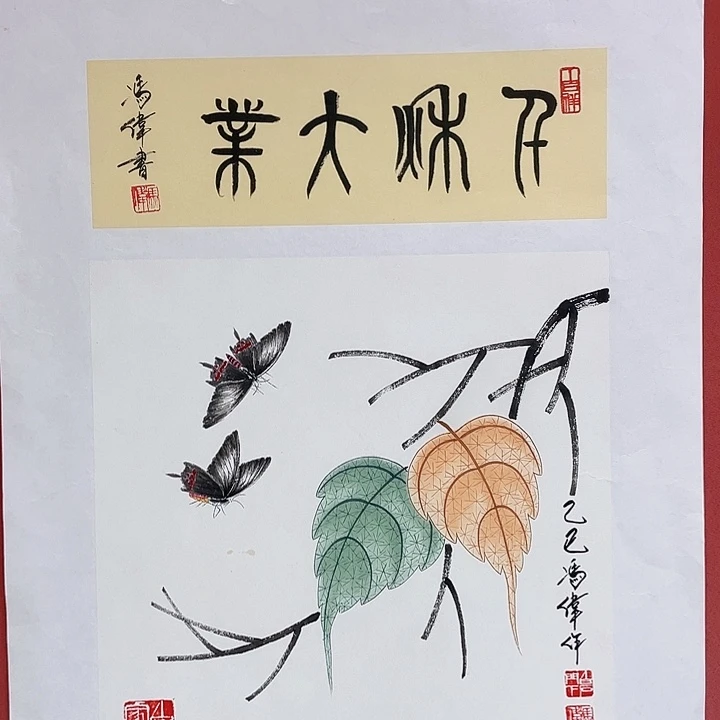 千秋大業
馮偉書
乙巳馮偉作